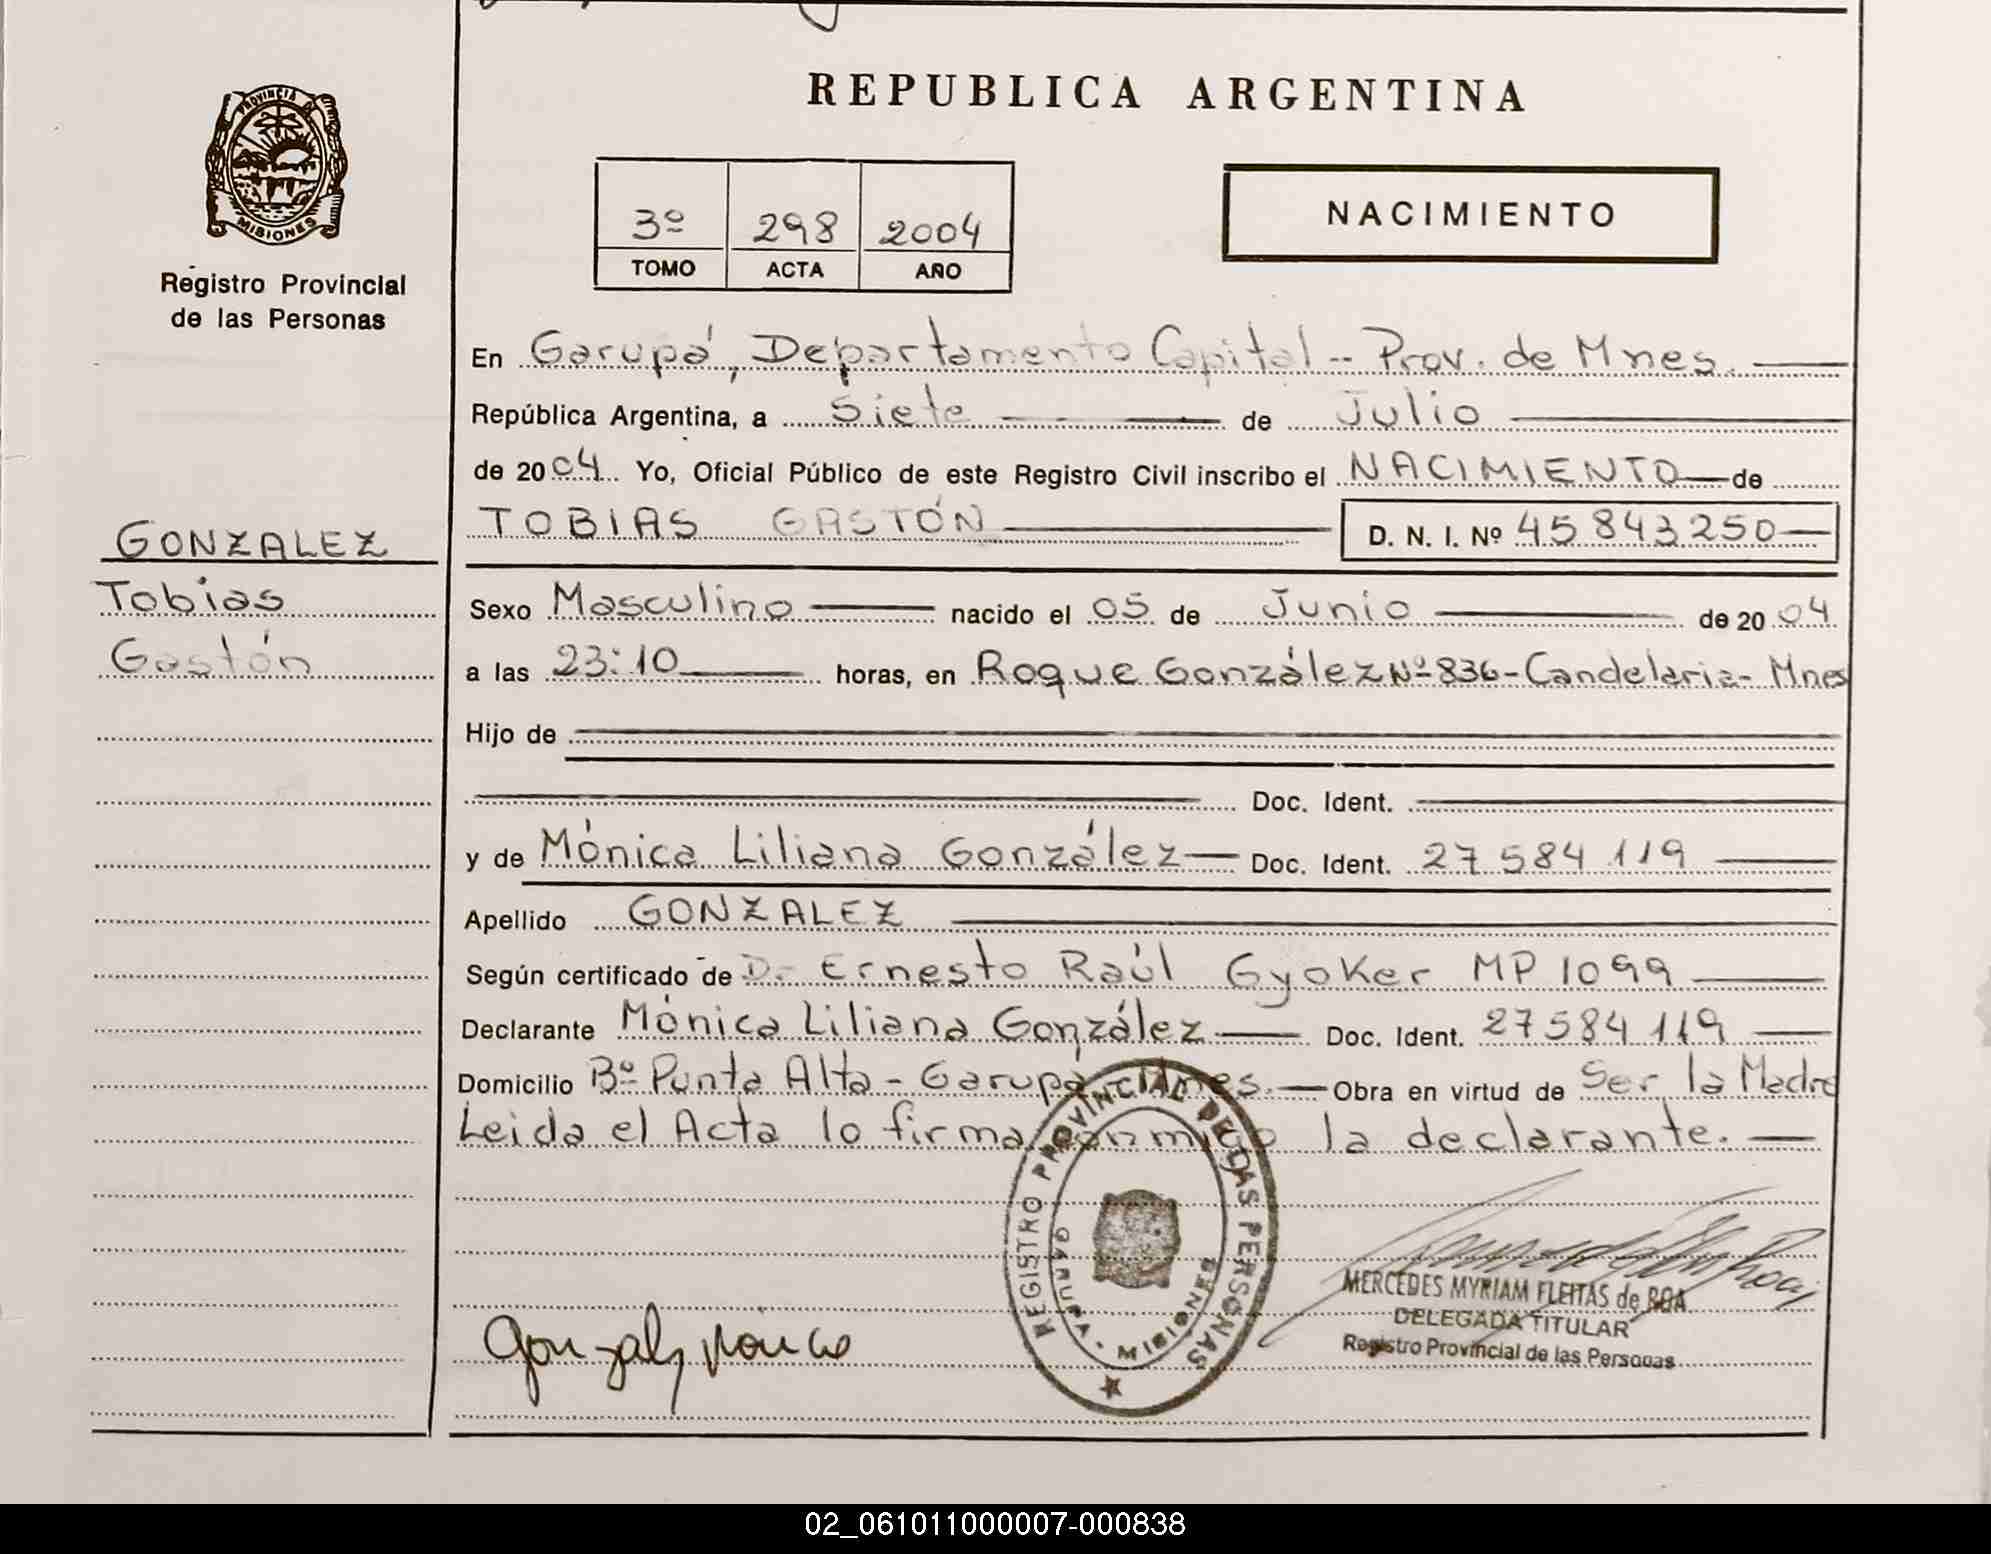 REPUBLICA ARGENTINA
PROVINCIA DE MISIONES
Registro Provincial
de las Personas
3º 298 2004
TOMO ACTA AÑO
NACIMIENTO
En Garupá, Departamento Capital -- Prov. de Mnes.
República Argentina, a Siete de Julio
de 2004 Yo, Oficial Público de este Registro Civil inscribo el NACIMIENTO de
TOBIAS GASTÓN D. N. I. Nº 45 843 250
GONZALEZ
Tobias
Gastón
Sexo Masculino nacido el 05 de Junio de 2004
a las 23:10 horas, en Roque González Nº 836 - Candelaria - Mnes
Hijo de
Doc. Ident.
y de Mónica Liliana González Doc. Ident. 27 584 119
Apellido GONZALEZ
Según certificado de Dr. Ernesto Raúl Gyoker MP 1099
Declarante Mónica Liliana González Doc. Ident. 27 584 119
Domicilio Bº Punta Alta - Garupá - Mnes. Obra en virtud de Ser la Madre
Leida el Acta lo firma conmigo la declarante.
REGISTRO PROVINCIAL DE LAS PERSONAS
GARUPA - MISIONES
MERCEDES MYRIAM FLEITAS de ROA
DELEGADA TITULAR
Registro Provincial de las Personas
02_061011000007-000838